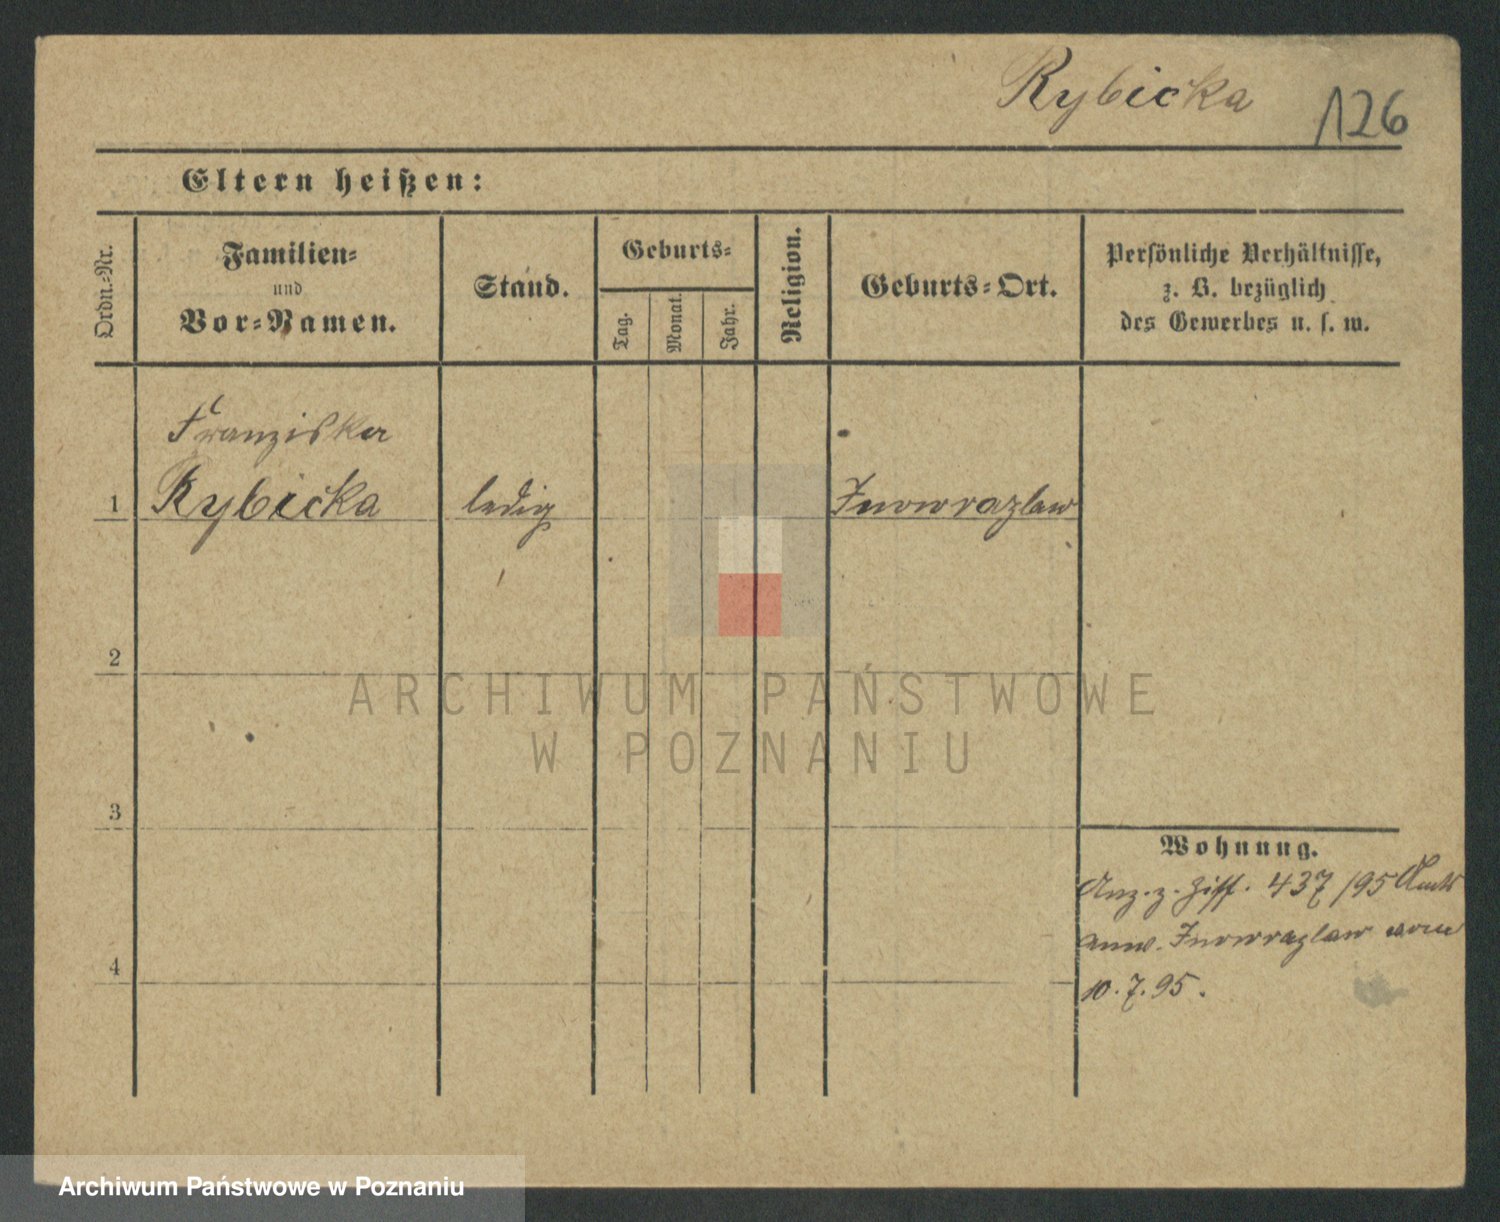 Rybicka
126
Eltern heißen:
Ordn.-Nr.
Familien-
und
Vor-Namen.
Stand.
Geburts-
Tag.
Monat.
Jahr.
Religion.
Geburts-Ort.
Persönliche Verhältnisse,
z. B. bezüglich
des Gewerbes u. s. w.
Franziska
1 Rybicka ledig Inowrazlaw
2
ARCHIWUM PAŃSTWOWE
W POZNANIU
3
Wohnung.
Anz. z. Ziff. 437/95 Amts
anw. Inowrazlaw vom
4
10.7.95.
Archiwum Państwowe w Poznaniu